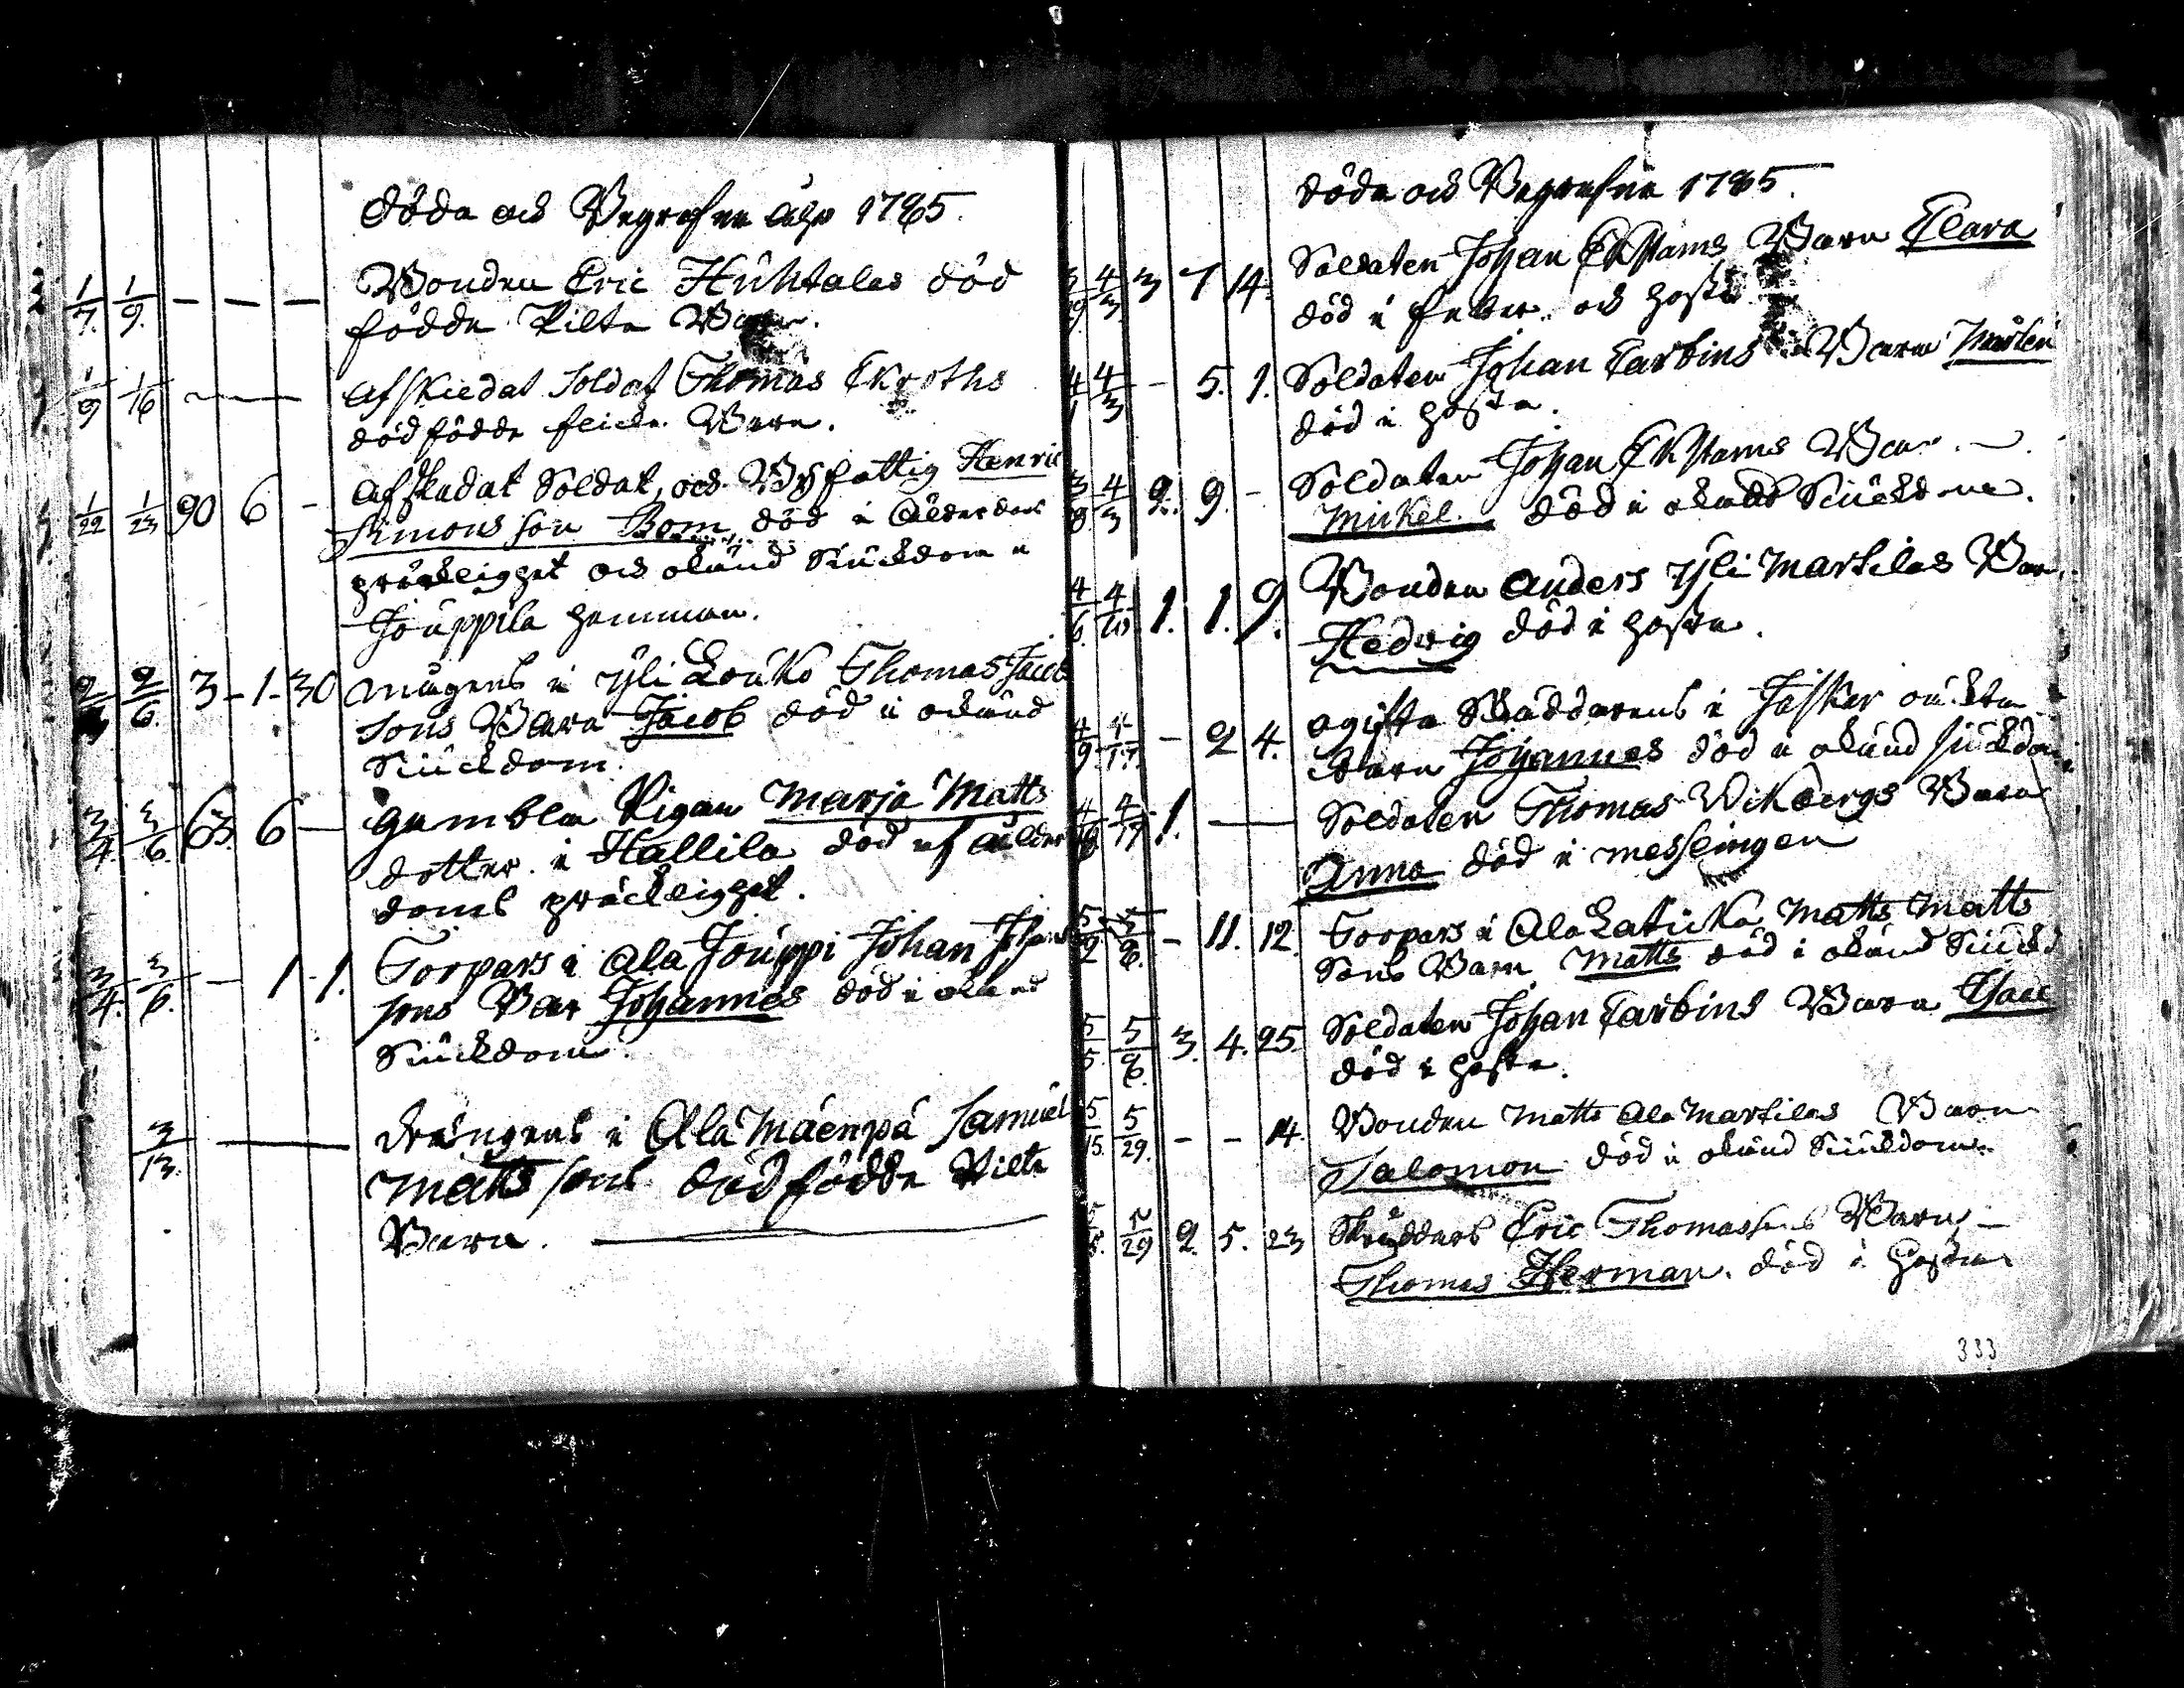 döda och Begrafne Åhr 1785.
1/7. 1/9. – – – Bonden Eric Huhtalas död
födde Pilte Barn.
1/9 1/16 – afskiedat Soldat Thomas Ekroths
dödfödde flicke Barn.
1/22 1/23 90 6 – afskedat Soldat, och Byfattig Henric
Simons son Bom död i Ålderdoms
bräckligheet och okänd Siuckdom i
Jouppila hemman.
2/6. 3 – 1 – 30 mågens i Yli Louko Thomas Jacob
sons Barn Jacob död i okänd
Siuckdom.
3/4. 3/6. 63. 6 – gambla Pigan Marja Matts
dotter i Hallila död af ålder
doms bräckligheet.
3/4. 3/6. – 1 – 1. Torpars i Ala Jouppi Johan Johans
sons Barn Johannes död i okänd
Siuckdom.
3/13. – drängens i Ala Mäenpä Samuel
Matts sons dödfödde Pilte
Barn.
döda och Begrafne 1785.
4/3 3 7 14. Soldaten Johan Ekstams Barn Clara
död i feber och hosta
4/1 4/3 – 5. 1. Soldaten Johan Carbins Barn
död i hosta.
4/3 9. 9. – Soldaten Johan Ekstams Barn
Mickel död i okänd Siuckdom.
4/6 4/10 1. 1. 9. Bonden Anders Yli Martilas Barn
Hedvig död i hosta.
4/9. 4/17. – 2 4. ogifta Skräddarens i
Barn Johannes död i okänd siuckdom
4/17 1. – Soldaten Thomas Vikbergs Barn
Anna död i messlingen
5/2 5/8. – 11. 12. Torpars i Ala Latuka Matts Matts
Sons Barn Matts död i okänd Siuckd
5/5. 5/8. 3. 4. 25. Soldaten Johan Carbins Barn Isaac
död i hosta.
5/15. 5/29. – – 14. Bonden Matts Ala Martilas Barn
Salomon död i okänd Siuckdom.
5/29 2. 5. 23 Skräddars Eric Thomassons Barn
Thomas Herman död i hosta
333